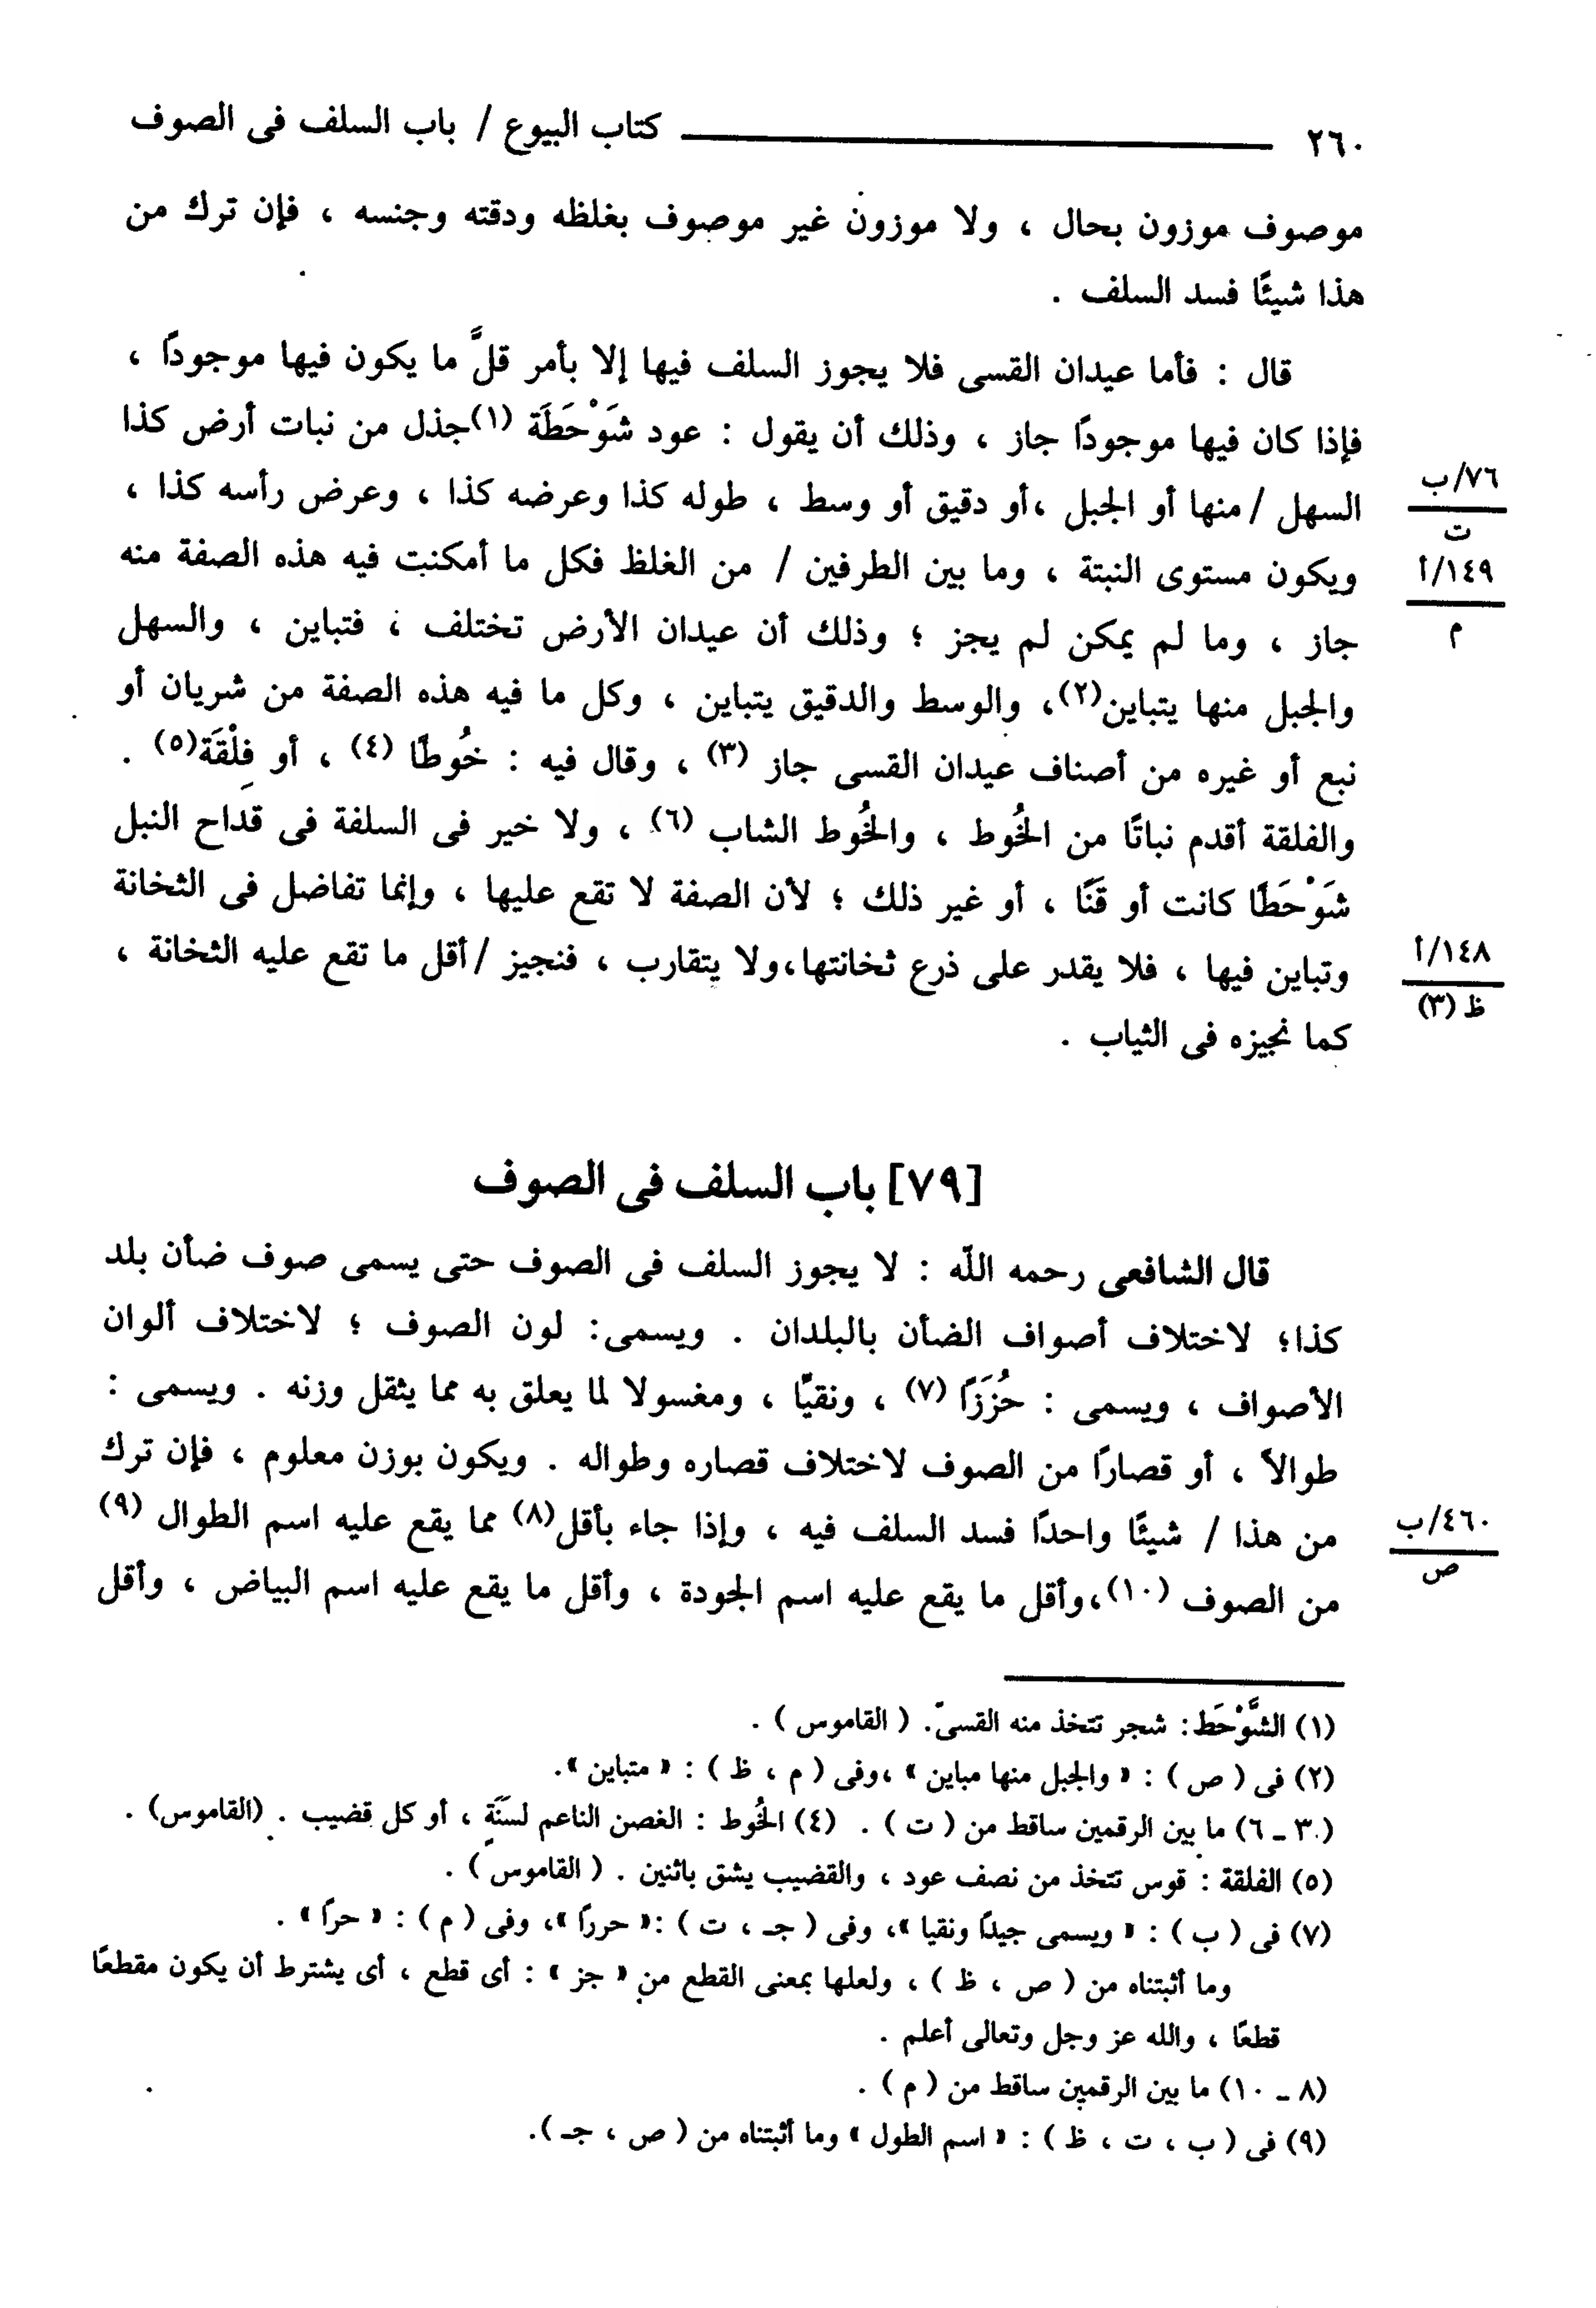 ٢٦٠ كتاب البيوع / باب السلف فى الصوف
موصوف موزون بحال ، ولا موزون غير موصوف بغلظه ودقته وجنسه ، فإن ترك من
هذا شيئًا فسد السلف .
قال : فأما عيدان القسى فلا يجوز السلف فيها إلا بأمر قلَّ ما يكون فيها موجودًا ،
فإذا كان فيها موجودًا جاز ، وذلك أن يقول : عود شَوْحَطَة (١)جذل من نبات أرض كذا
السهل /منها أو الجبل ،أو دقيق أو وسط ، طوله كذا وعرضه كذا ، وعرض رأسه كذا ،
٧٦/ب
ت
ويكون مستوى النبتة ، وما بين الطرفين / من الغلظ فكل ما أمكنت فيه هذه الصفة منه
١٤٩/أ
م
جاز ، وما لم يمكن لم يجز ؛ وذلك أن عيدان الأرض تختلف ، فتباين ، والسهل
والجبل منها يتباين(٢)، والوسط والدقيق يتباين ، وكل ما فيه هذه الصفة من شريان أو
نبع أو غيره من أصناف عيدان القسى جاز (٣) ، وقال فيه : خُوطًا (٤) ، أو فِلْقَة(٥) .
والفلقة أقدم نباتًا من الخُوط ، والخُوط الشاب (٦) ، ولا خير فى السلفة فى قداح النبل
شَوْحَطًا كانت أو قَنًا ، أو غير ذلك ؛ لأن الصفة لا تقع عليها ، وإنما تفاضل فى الثخانة
وتباين فيها ، فلا يقدر على ذرع ثخانتها،ولا يتقارب ، فنجيز /أقل ما تقع عليه الثخانة ،
١٤٨/أ
ظ (٣)
كما نجيزه فى الثياب .
[٧٩] باب السلف فى الصوف
قال الشافعى رحمه الله : لا يجوز السلف فى الصوف حتى يسمى صوف ضأن بلد
كذا؛ لاختلاف أصواف الضأن بالبلدان . ويسمى: لون الصوف ؛ لاختلاف ألوان
الأصواف ، ويسمى : حُزَزًا (٧) ، ونقيًا ، ومغسولا لما يعلق به مما يثقل وزنه . ويسمى :
طوالاً ، أو قصارًا من الصوف لاختلاف قصاره وطواله . ويكون بوزن معلوم ، فإن ترك
من هذا / شيئًا واحدًا فسد السلف فيه ، وإذا جاء بأقل(٨) مما يقع عليه اسم الطوال (٩)
٤٦٠/ب
ص
من الصوف (١٠)،وأقل ما يقع عليه اسم الجودة ، وأقل ما يقع عليه اسم البياض ، وأقل
(١) الشَّوْحَط: شجر تتخذ منه القسىّ. ( القاموس ) .
(٢) فى ( ص ) : « والجبل منها مباين » ،وفى ( م ، ظ ) : « متباين ».
(٣ ـ ٦) ما بين الرقمين ساقط من ( ت ) . (٤) الخُوط : الغصن الناعم لسَنَةٍ ، أو كل قضيب . (القاموس) .
(٥) الفلقة : قوس تتخذ من نصف عود ، والقضيب يشق باثنين . ( القاموس ) .
(٧) فى ( ب ) : « ويسمى جيدًا ونقيا »، وفى ( جـ ، ت ) :« حررًا »، وفى ( م ) : « حرًا » .
وما أثبتناه من ( ص ، ظ ) ، ولعلها بمعنى القطع من « جز » : أى قطع ، أى يشترط أن يكون مقطعًا
قطعًا ، والله عز وجل وتعالى أعلم .
(٨ ـ ١٠) ما بين الرقمين ساقط من ( م ) .
(٩) فى ( ب ، ت ، ظ ) : « اسم الطول » وما أثبتناه من ( ص ، جـ ).